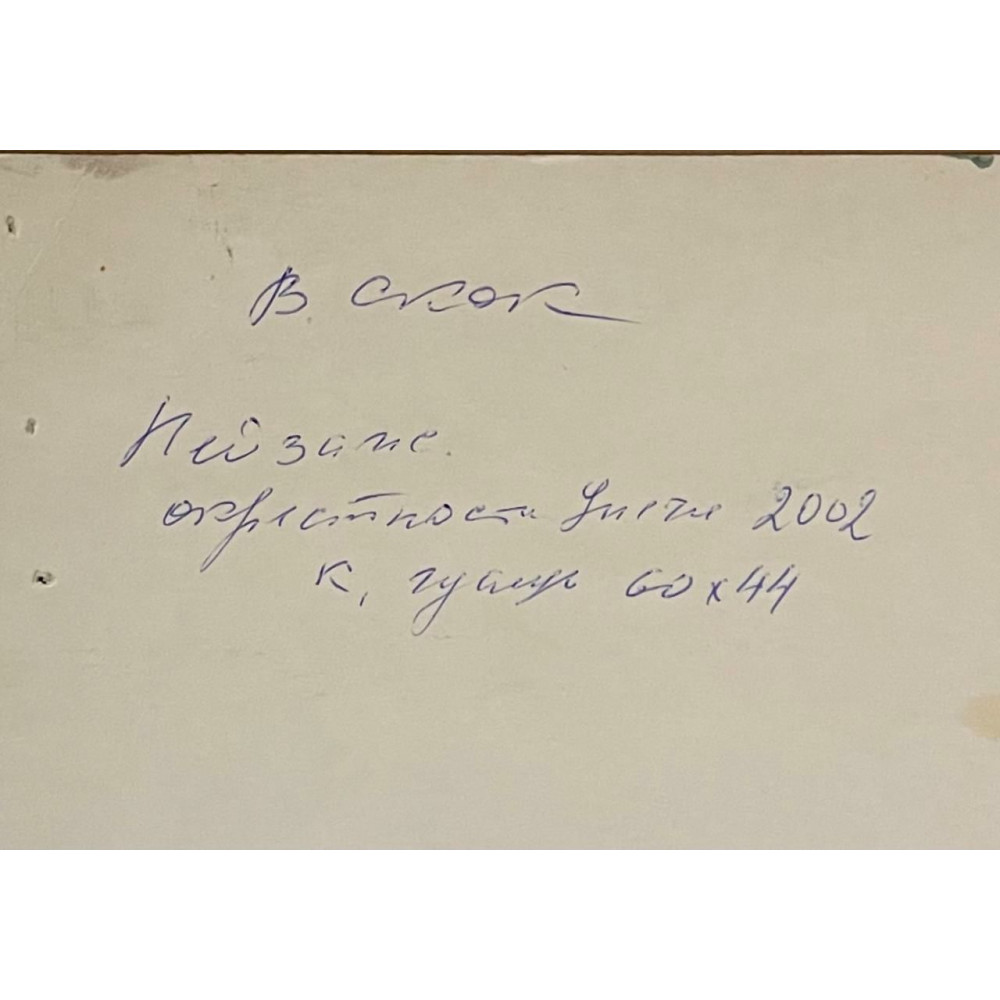 В. Скок
Пейзаж.
окрестности 2002
К, гуашь 60х44